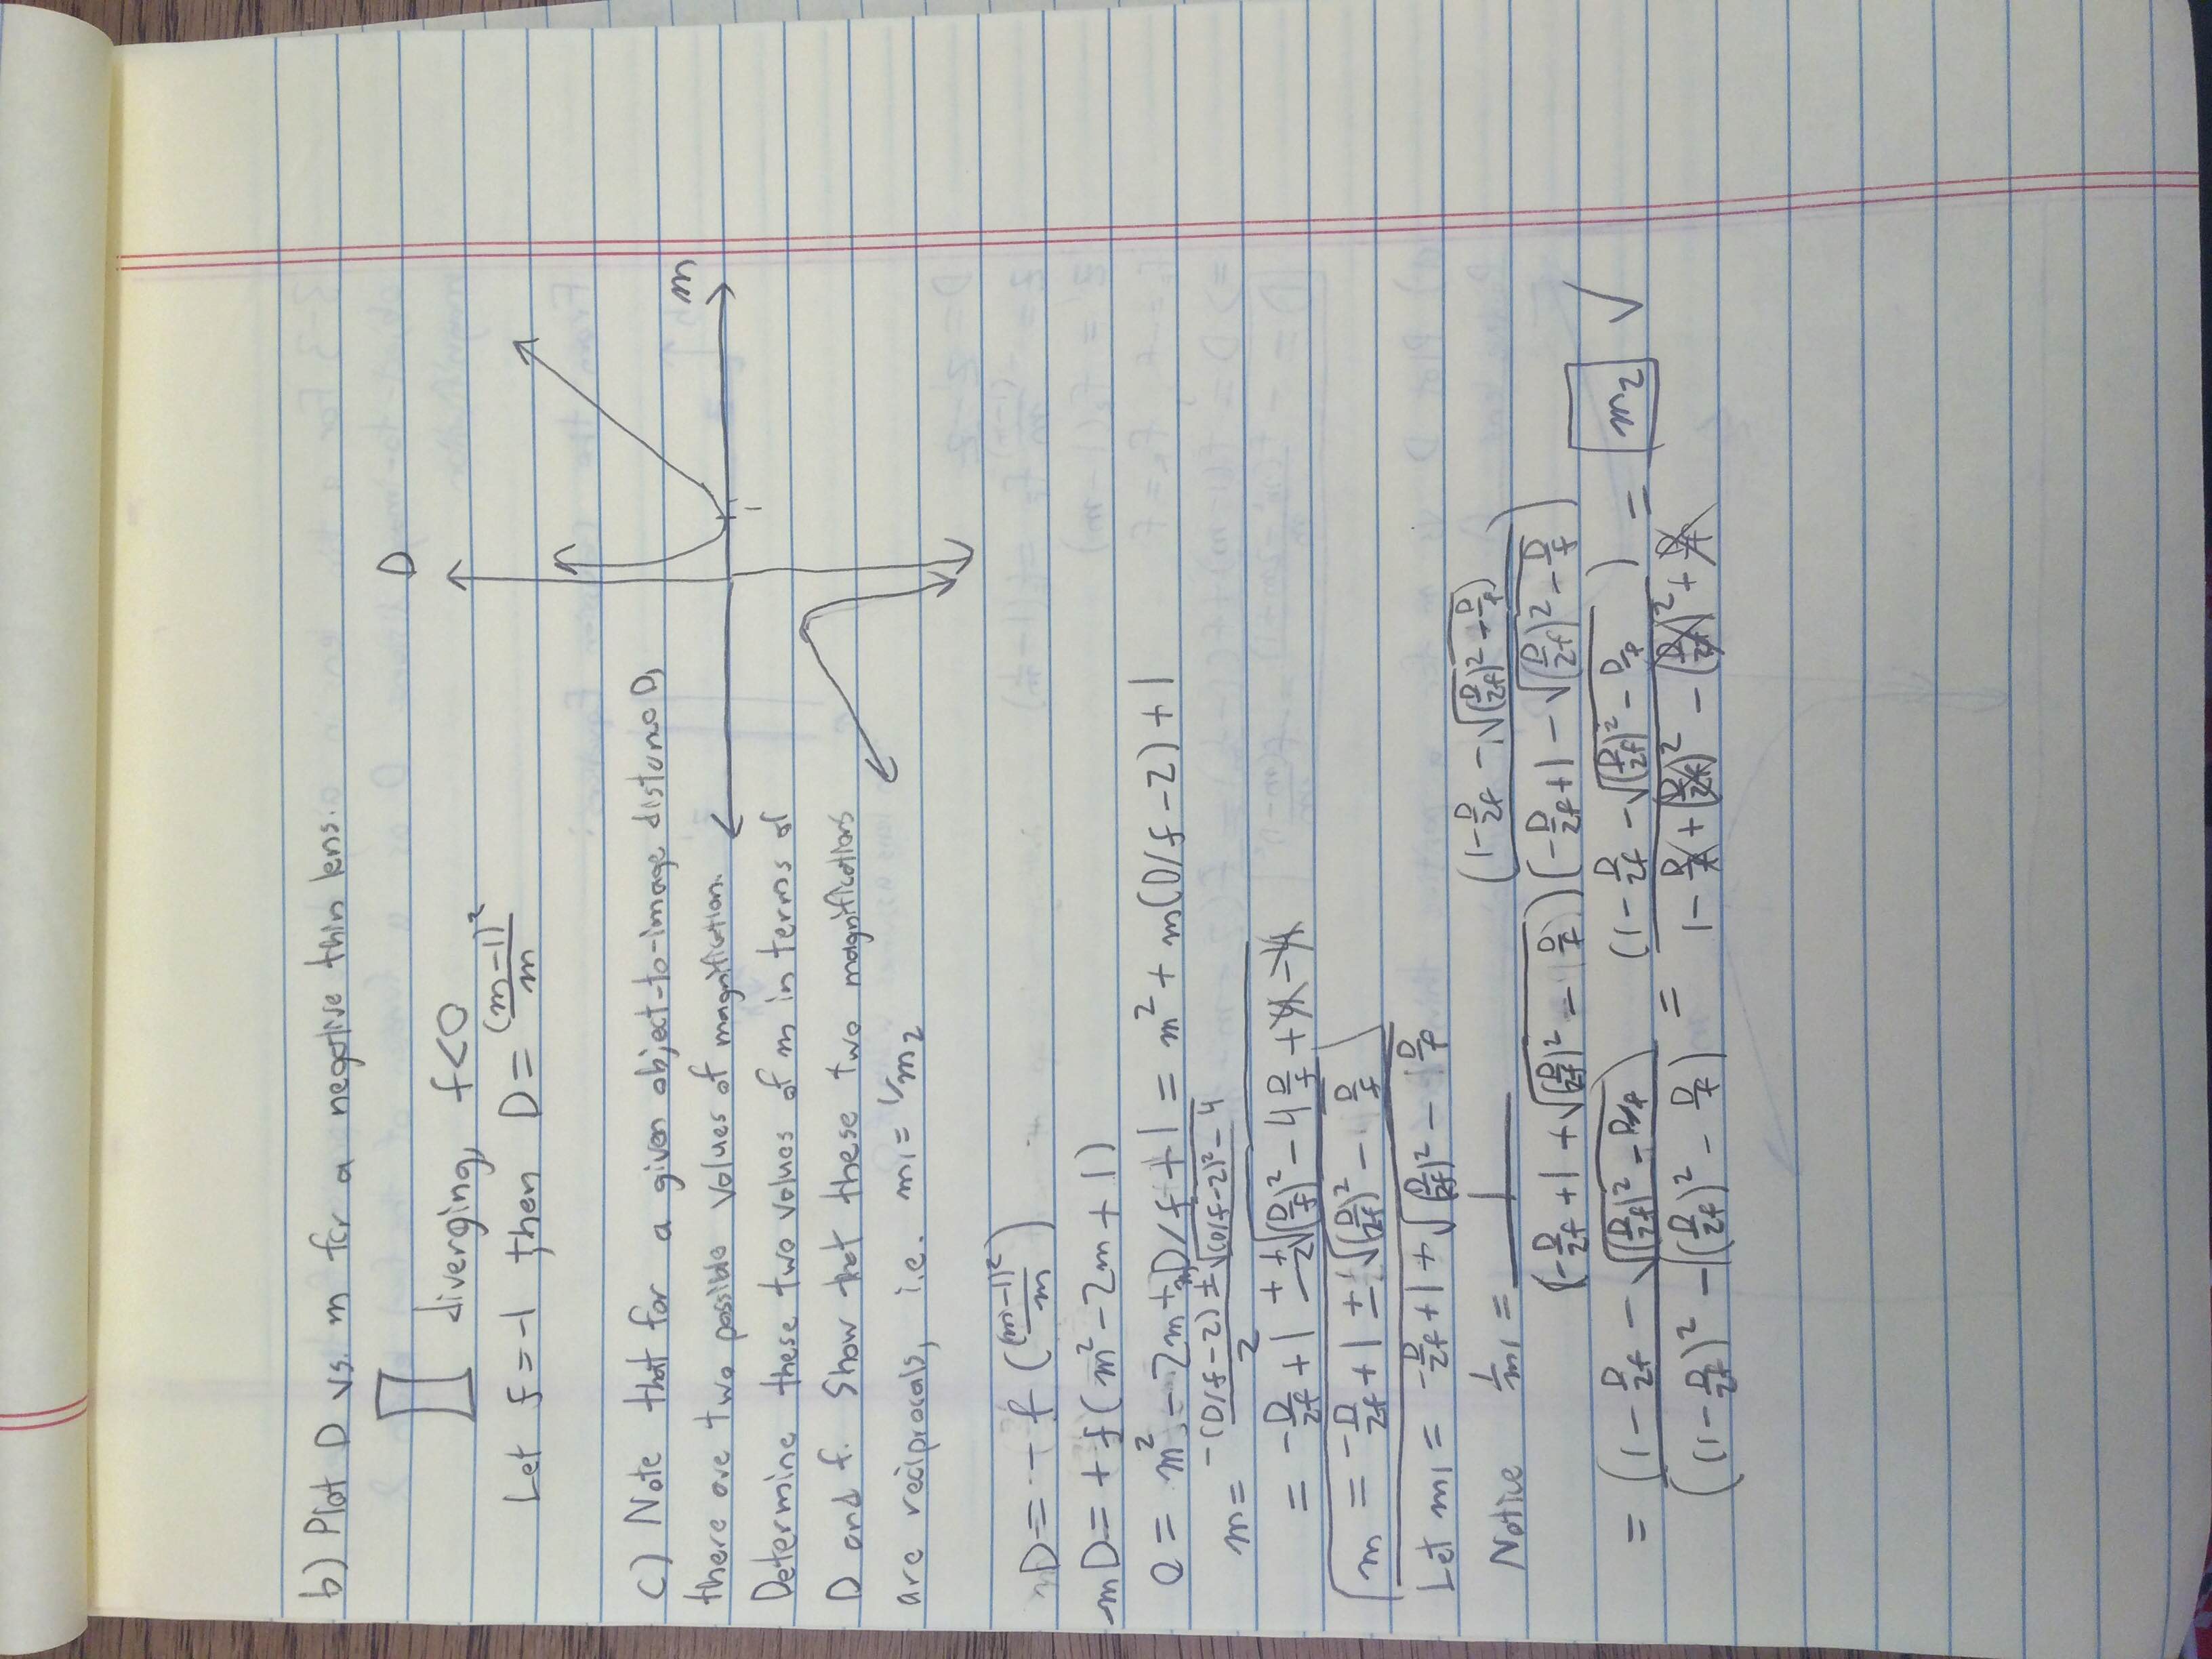 b) Plot D vs. m for a negative thin lens.
D
diverging, f<0
Let f = -1 then D = (m-1)²/m
c) Note that for a given object-to-image distance D,
m
there are two possible values of magnification.
1
Determine these two values of m in terms of
D and f. Show that these two magnifications
are reciprocals, i.e. m₁ = 1/m₂
D = - f ((m-1)²/m)
-mD = + f(m² - 2m + 1)
0 = m² - 2m + mD/f + 1 = m² + m(D/f - 2) + 1
m = (-(D/f - 2) ± √((D/f - 2)² - 4))/2
= -D/2f + 1 ± 1/2 √((D/f)² - 4 D/f + 4 - 4)
m = -D/2f + 1 ± √((D/2f)² - D/f)
Let m₁ = -D/2f + 1 + √((D/2f)² - D/f)
Notice 1/m₁ = 1/(-D/2f + 1 + √((D/2f)² - D/f)) (1 - D/2f - √((D/2f)² - D/f))/(-D/2f + 1 - √((D/2f)² - D/f))
= (1 - D/2f - √((D/2f)² - D/f))/((1 - D/2f)² - ((D/2f)² - D/f)) = (1 - D/2f - √((D/2f)² - D/f))/(1 - D/f + (D/2f)² - (D/2f)² + D/f) = m₂ ✓